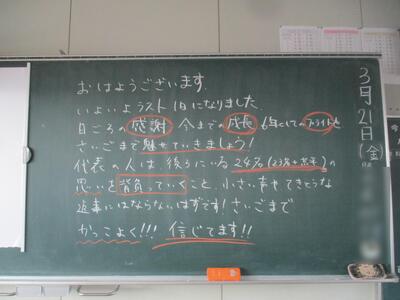 おはようございます。
いよいよラスト1日になりました。
日ごろの感謝 今までの成長 6年としてのプライドを
さいごまで魅せていきましょう!
代表の人は、後ろにいる24名(23名+先生)の
思いを背負っていくこと。小さい声やてきとうな
返事にはならないはずです!さいごまで
かっこよく!!! 信じてます!!
3月21日(金)